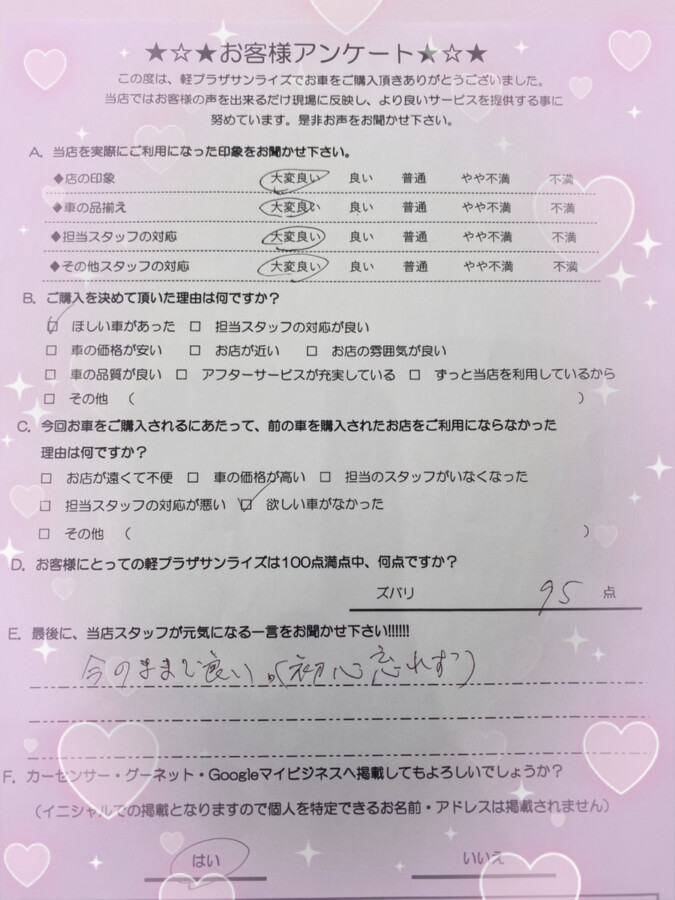 ★☆★お客様アンケート★☆★
この度は、軽プラザサンライズでお車をご購入頂きありがとうございました。
当店ではお客様の声を出来るだけ現場に反映し、より良いサービスを提供する事に
努めています。是非お声をお聞かせ下さい。
A. 当店を実際にご利用になった印象をお聞かせ下さい。
◆店の印象 大変良い 良い 普通 やや不満 不満
◆車の品揃え 大変良い 良い 普通 やや不満 不満
◆担当スタッフの対応 大変良い 良い 普通 やや不満 不満
◆その他スタッフの対応 大変良い 良い 普通 やや不満 不満
B. ご購入を決めて頂いた理由は何ですか？
☑ ほしい車があった □ 担当スタッフの対応が良い
□ 車の価格が安い □ お店が近い □ お店の雰囲気が良い
□ 車の品質が良い □ アフターサービスが充実している □ ずっと当店を利用しているから
□ その他 （ ）
C. 今回お車をご購入されるにあたって、前の車を購入されたお店をご利用にならなかった
理由は何ですか？
□ お店が遠くて不便 □ 車の価格が高い □ 担当のスタッフがいなくなった
□ 担当スタッフの対応が悪い ☑ 欲しい車がなかった
□ その他 （ ）
D. お客様にとっての軽プラザサンライズは100点満点中、何点ですか？
ズバリ 95 点
E. 最後に、当店スタッフが元気になる一言をお聞かせ下さい!!!!!!
今のままで良い。(初心忘れずっ)
F. カーセンサー・グーネット・Googleマイビジネスへ掲載してもよろしいでしょうか？
（イニシャルでの掲載となりますので個人を特定できるお名前・アドレスは掲載されません）
はい いいえ